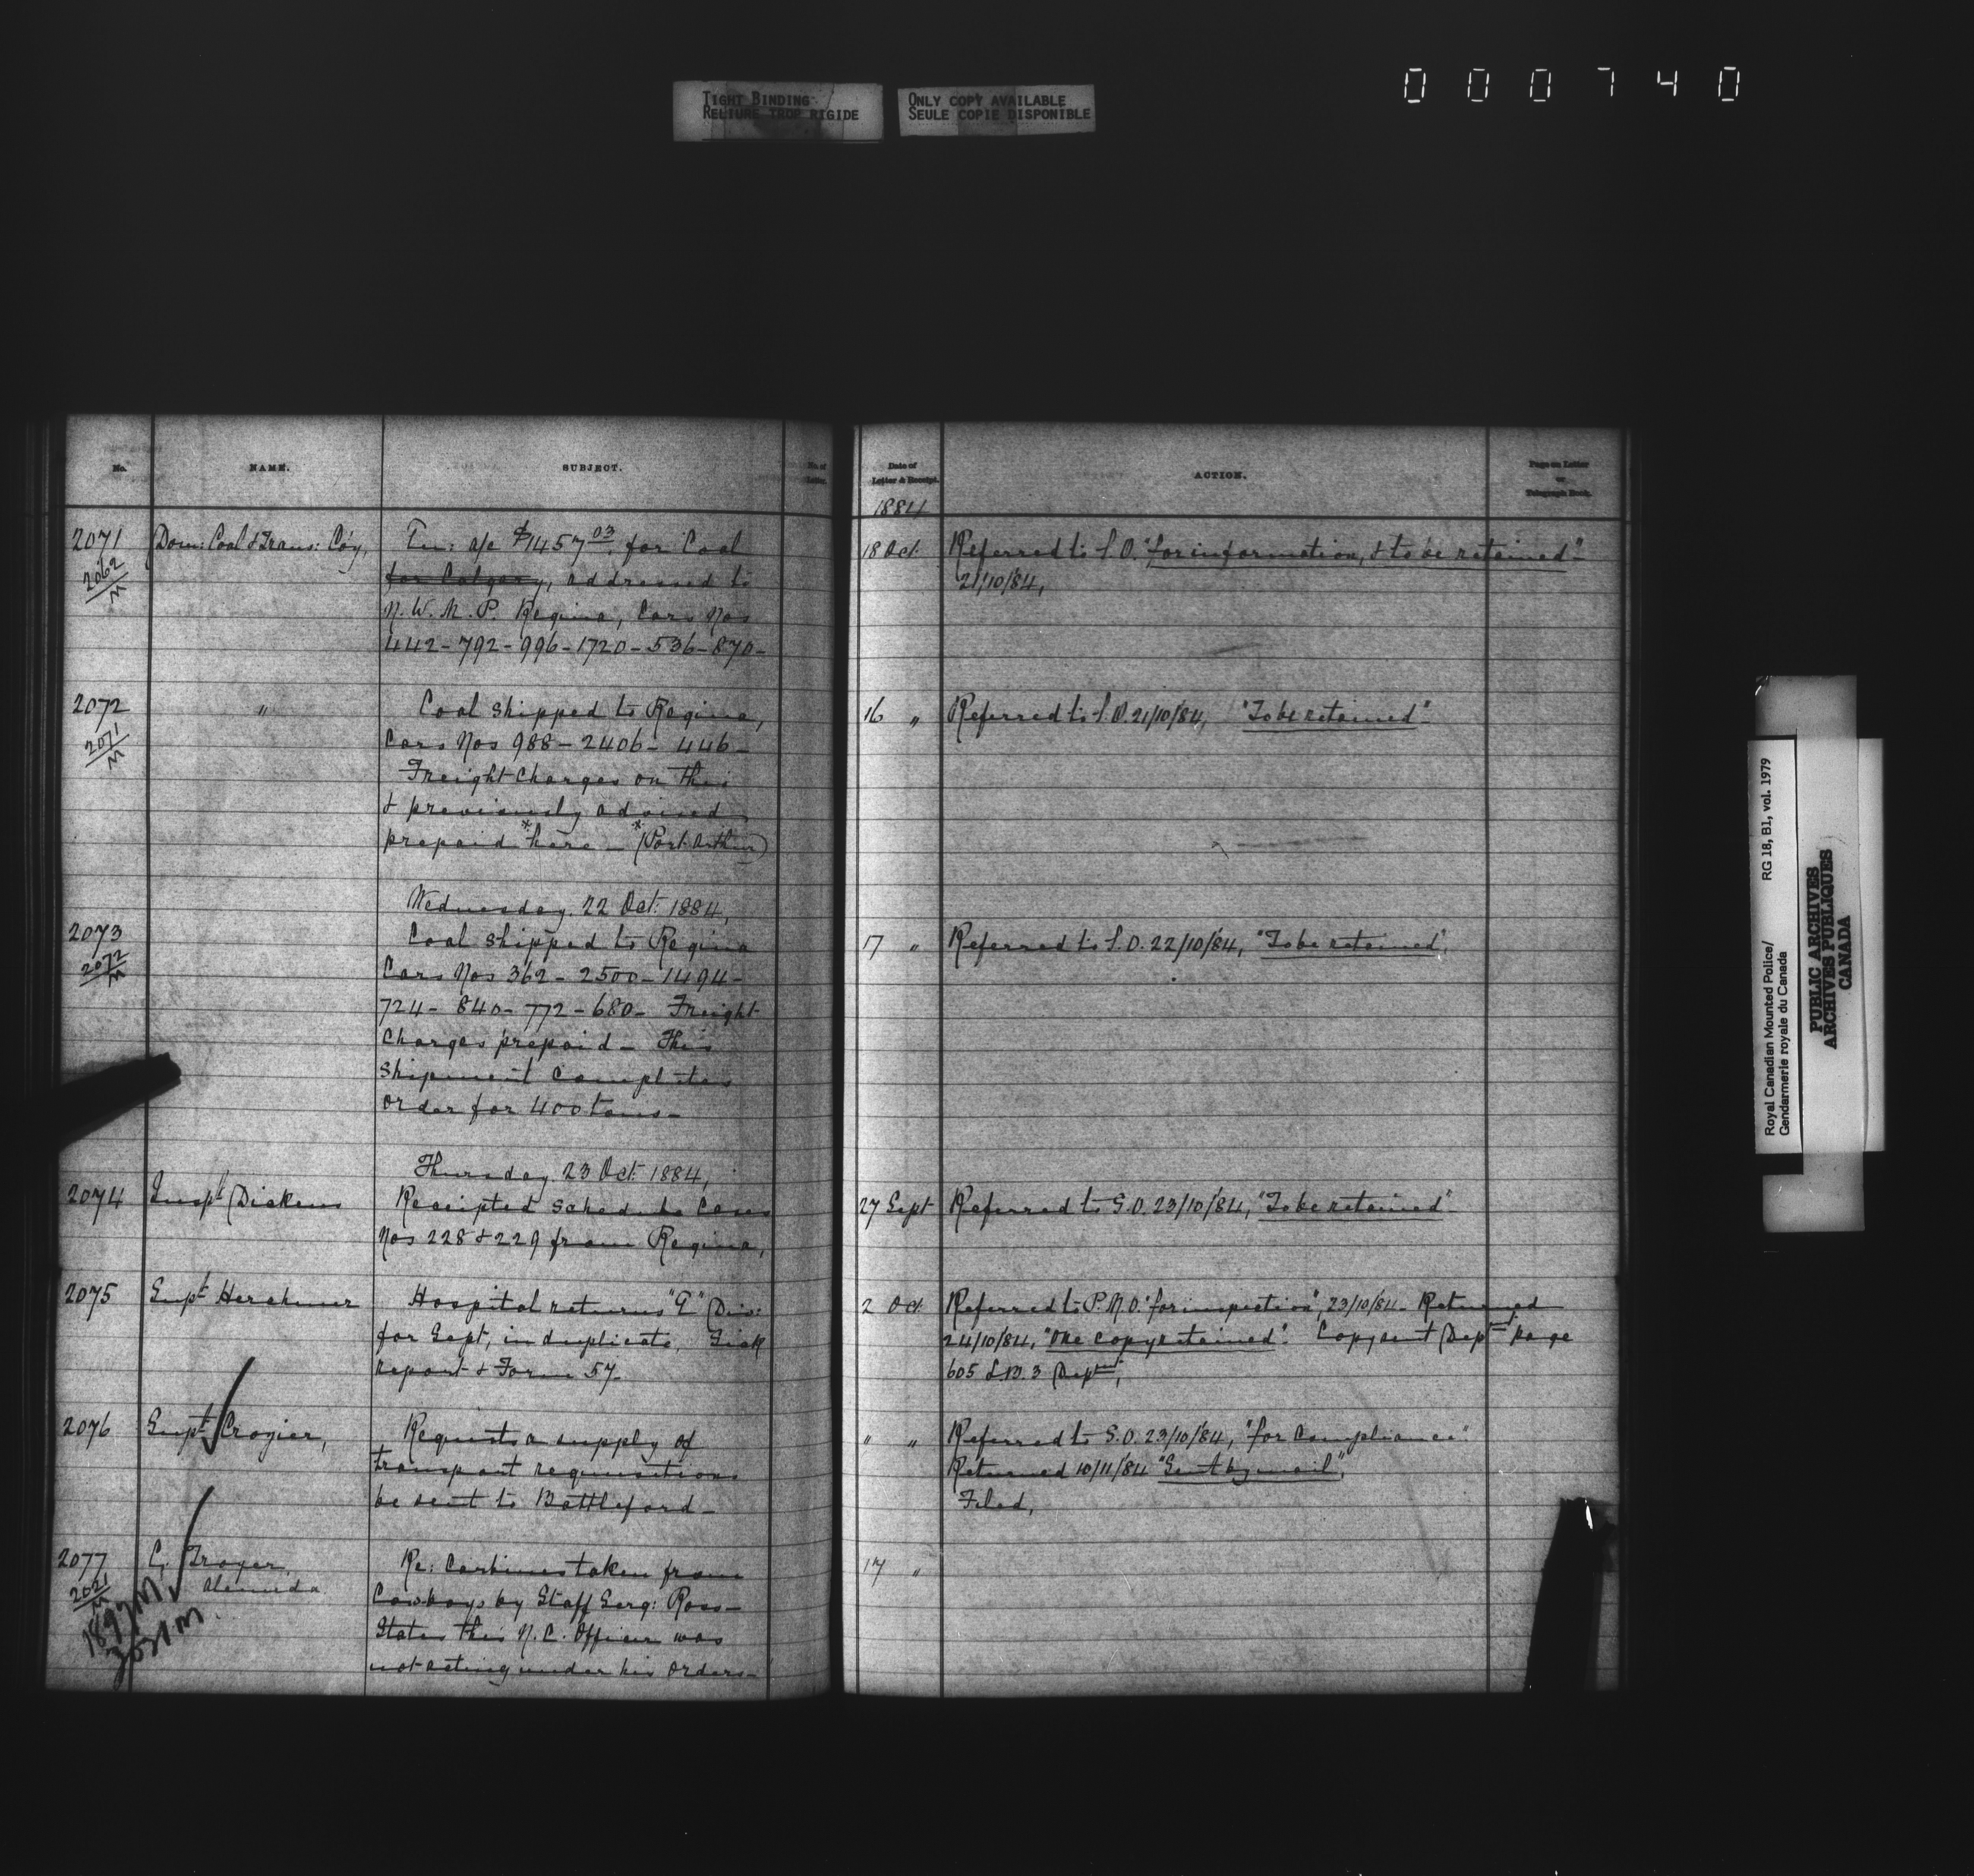 TIGHT BINDING
RELIURE TROP RIGIDE
ONLY COPY AVAILABLE
SEULE COPIE DISPONIBLE
000740
No.
NAME.
SUBJECT.
No of
Date of
Letter & Receipt.
ACTION.
Page on Letter
or
Telegraph Book.
1884
2071
2062/M
Dom: Coal & Trans: Coy,
En: a/c $1457.03 for Coal
for Calgary, addressed to
N.W.M.P. Regina, Cars Nos
442-792-996-1720-536-870-
18 Oct.
Referred to S.O. "for information, & to be retained"
21/10/84,
2072
2071/M
"
Coal shipped to Regina,
Cars Nos 988-2406-446-
Freight Charges on this
& previously advised
prepaid *here - *(Port Arthur)
16 "
Referred to S.O. 21/10/84, "To be retained"
Wednesday, 22 Oct: 1884,
2073
2072/M
Coal shipped to Regina
Cars Nos 362-2500-1494-
724-840-772-680- Freight
Charges prepaid - This
shipment completes
order for 400 tons-
17 "
Referred to S.O. 22/10/84, "To be retained",
Thursday, 23 Oct: 1884,
2074
Inspt Dickens
Receipted schedule Cases
Nos 228 & 229 from Regina,
27 Sept
Referred to S.O. 23/10/84, "To be retained"
2075
Supt Herchmer
Hospital returns "G" Div:
for Sept, in duplicate, Sick
report & Form 57-
2 Oct.
Referred to P.M.O. "for inspection", 23/10/84- Returned
24/10/84, "One copy retained". Copy sent Deptment page
605 L.B. 3 Deptment,
2076
Supt Crozier,
Requests a supply of
transport requisitions
be sent to Battleford-
" "
Referred to S.O. 23/10/84, "for Compliance"
Returned 10/11/84 "Sent by mail",
Filed,
2077
2021/M
1897M
C. Troyer,
Alameda
Re: Carbines taken from
Cowboys by Staff Serg: Ross-
States this N.C. Officer was
not acting under his orders-
17 "
Royal Canadian Mounted Police/
Gendarmerie royale du Canada
RG 18, B1, vol. 1979
PUBLIC ARCHIVES
ARCHIVES PUBLIQUES
CANADA